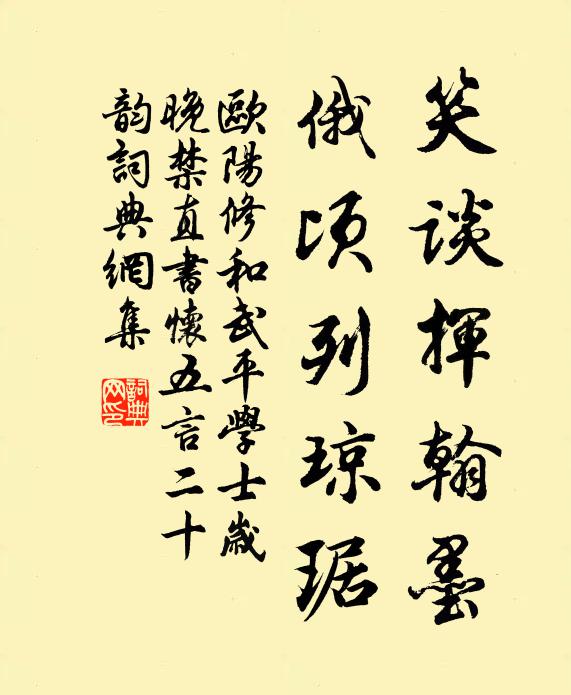 笑谈揮翰墨
俄頃列琼琚
歐陽修和武平學士歲
晚禁直書懷五言二十
韵詞典網集
詞典
网印